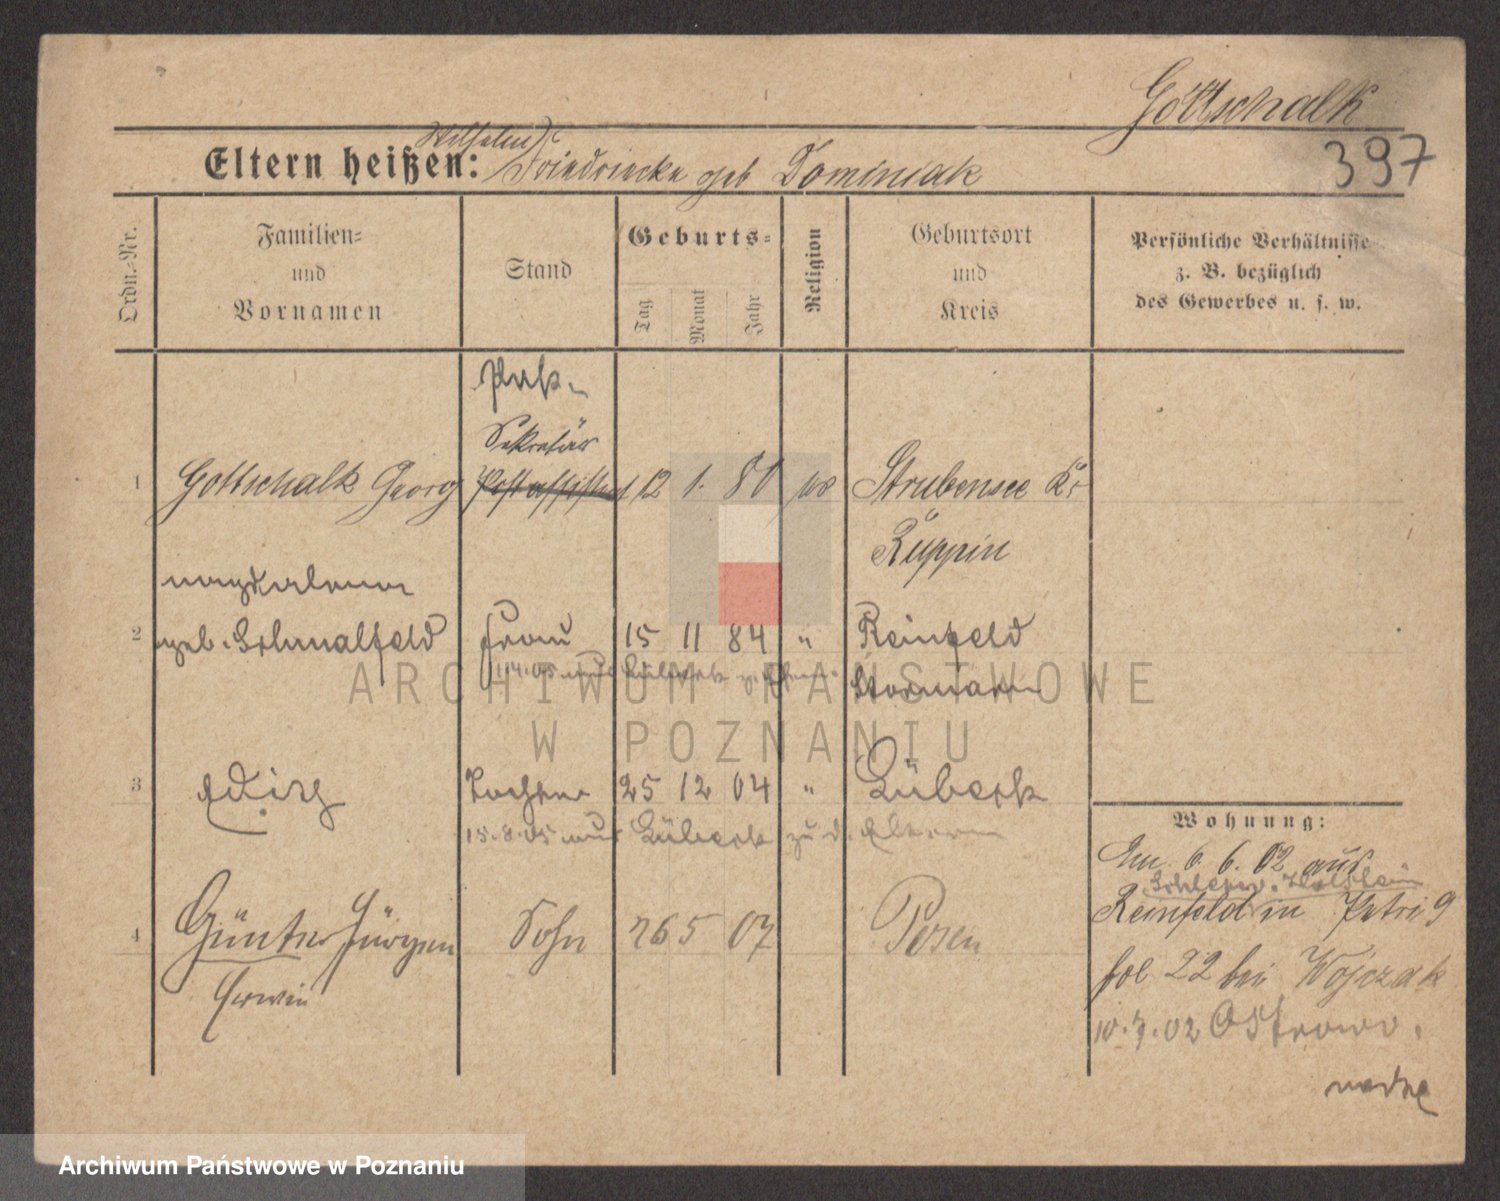 Gottschalk
397
Wilhelm
Eltern heißen: Friedricke geb Dominiak
Ordn.-Nr.
Familien- und Vornamen
Stand
Geburts-
Tag
Monat
Jahr
Religion
Geburtsort und Kreis
Persönliche Verhältnisse
z. B. bezüglich
des Gewerbes u. s. w.
Sekretär
1 Gottschalk Georg Postassistent 12 1. 80 Strubensee Kr
Ruppin
Magdalena
2 geb. Schmalfeld Frau 15 11 84 " Reinfeld
aus Lübeck
Stormarn
ARCHIWUM PAŃSTWOWE
W POZNANIU
3 Tochter 25 12 04 " Lübeck
15.8.05 aus Lübeck zu d. Eltern
Wohnung:
Am 6. 6. 02 aus
Schlesw. Holstein
Reinfeld in Petri 9
4 Günter Jürgen Sohn 26 5 07 Posen
Erwin
fol 22 bei Wojczak
10.7.02 Ostrowo.
Archiwum Państwowe w Poznaniu